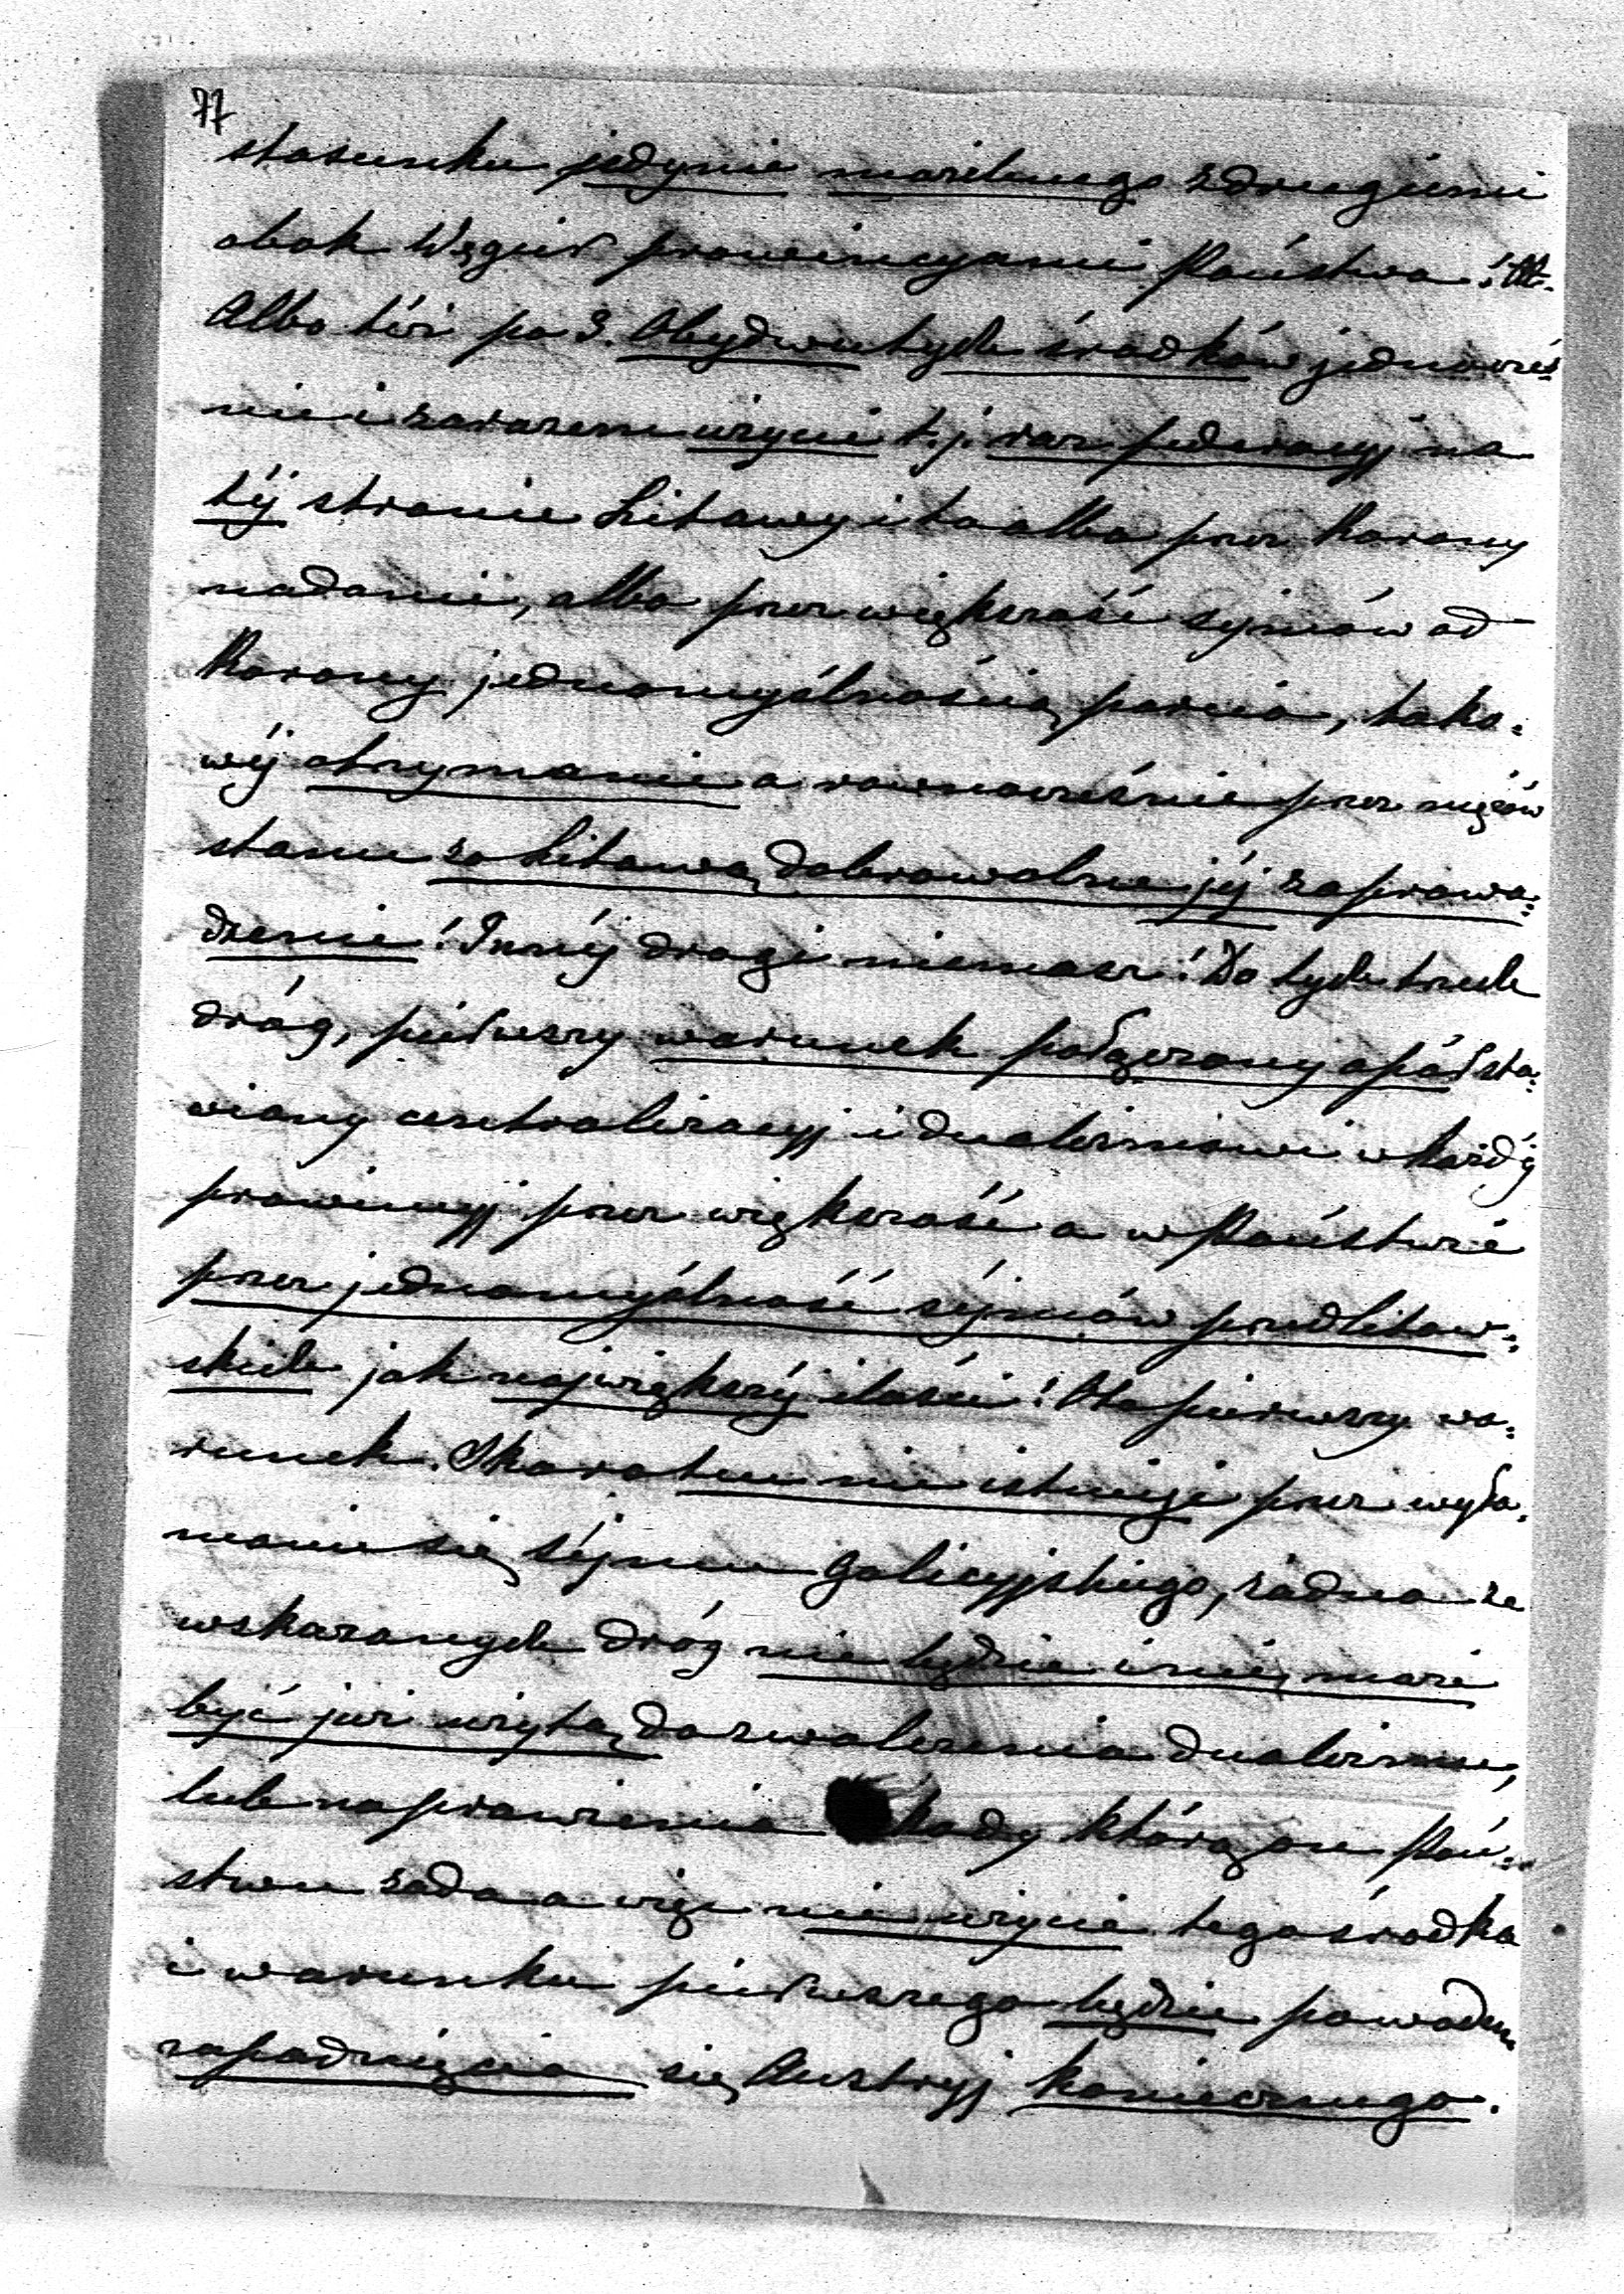 77
stosunku jedynie możebnego z drugiemi
obok Węgier prowincyami Państwa!
Albo też po 3. Obydwu tych środków jednocześ-
nie i zarazem użycie t. j. raz federacyj na
téj stronie Litawy i to albo przez Korony
nadanie, albo przez większość sejmów od
Korony jednomyślnością parcia, tako-
wéj otrzymanie a równocześnie przez mężów
stanu za Litawą dobrowolne jéj zaprowa-
dzenie! Innéj drogi niemasz! Do tych trzech
dróg, pierwszy warunek połączony opór sta-
wiany centralizacyj i dualizmowi w każdéj
prowincyj przez większość a w Państwie
przez jednomyślność séjmów przedlitaw-
skich jak największéj ilości! Oto pierwszy wa-
runek. Skoro tu nie istnieje przez wyła-
manie się séjmu galicyjskiego, żadna ze
wskazanych dróg nie będzie i nie może
być już użytą do zwalczenia dualizmu,
lub naprawienia szkody którą on Pań-
stwu zada a więc nie użycie tego środka
i warunku pierwszego będzie powodem
zapadnięcia się Austryj koniecznego.